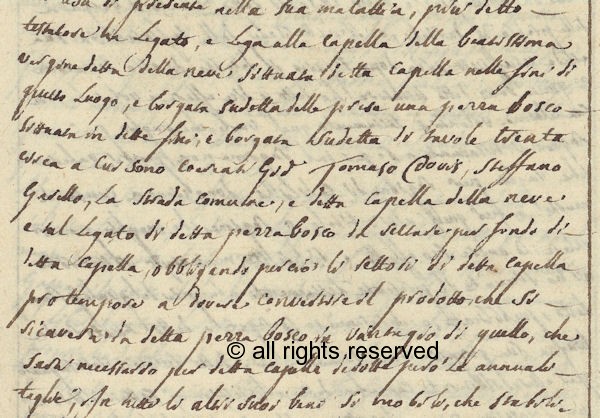 usa di presenza nella sua malattia, più detto
testatore ha legato, e lega alla capella della beatissima
vergine detta della neve situata detta capella nelle fini di
questo luogo, e borgata sudetta delle prese una pezza bosco
situata in dette fini, e borgata sudetta di tavole trenta
circa a cui sono coerenti Gio Tomaso Dovis, Steffano
Gasello, la strada comune, e detta capella della neve
e tal legato di detta pezza bosco da restare per fondo di
detta capella, obbligando perciò li rettori di detta capella
pro tempore a dover convertire il prodotto, che si
ricaverà da detta pezza bosco in vantaggio di quello, che
sarà necessario per detta capella dedotte però le annuali
taglie, In tutti li altri suoi beni si mobili, che stabili
© all rights reserved